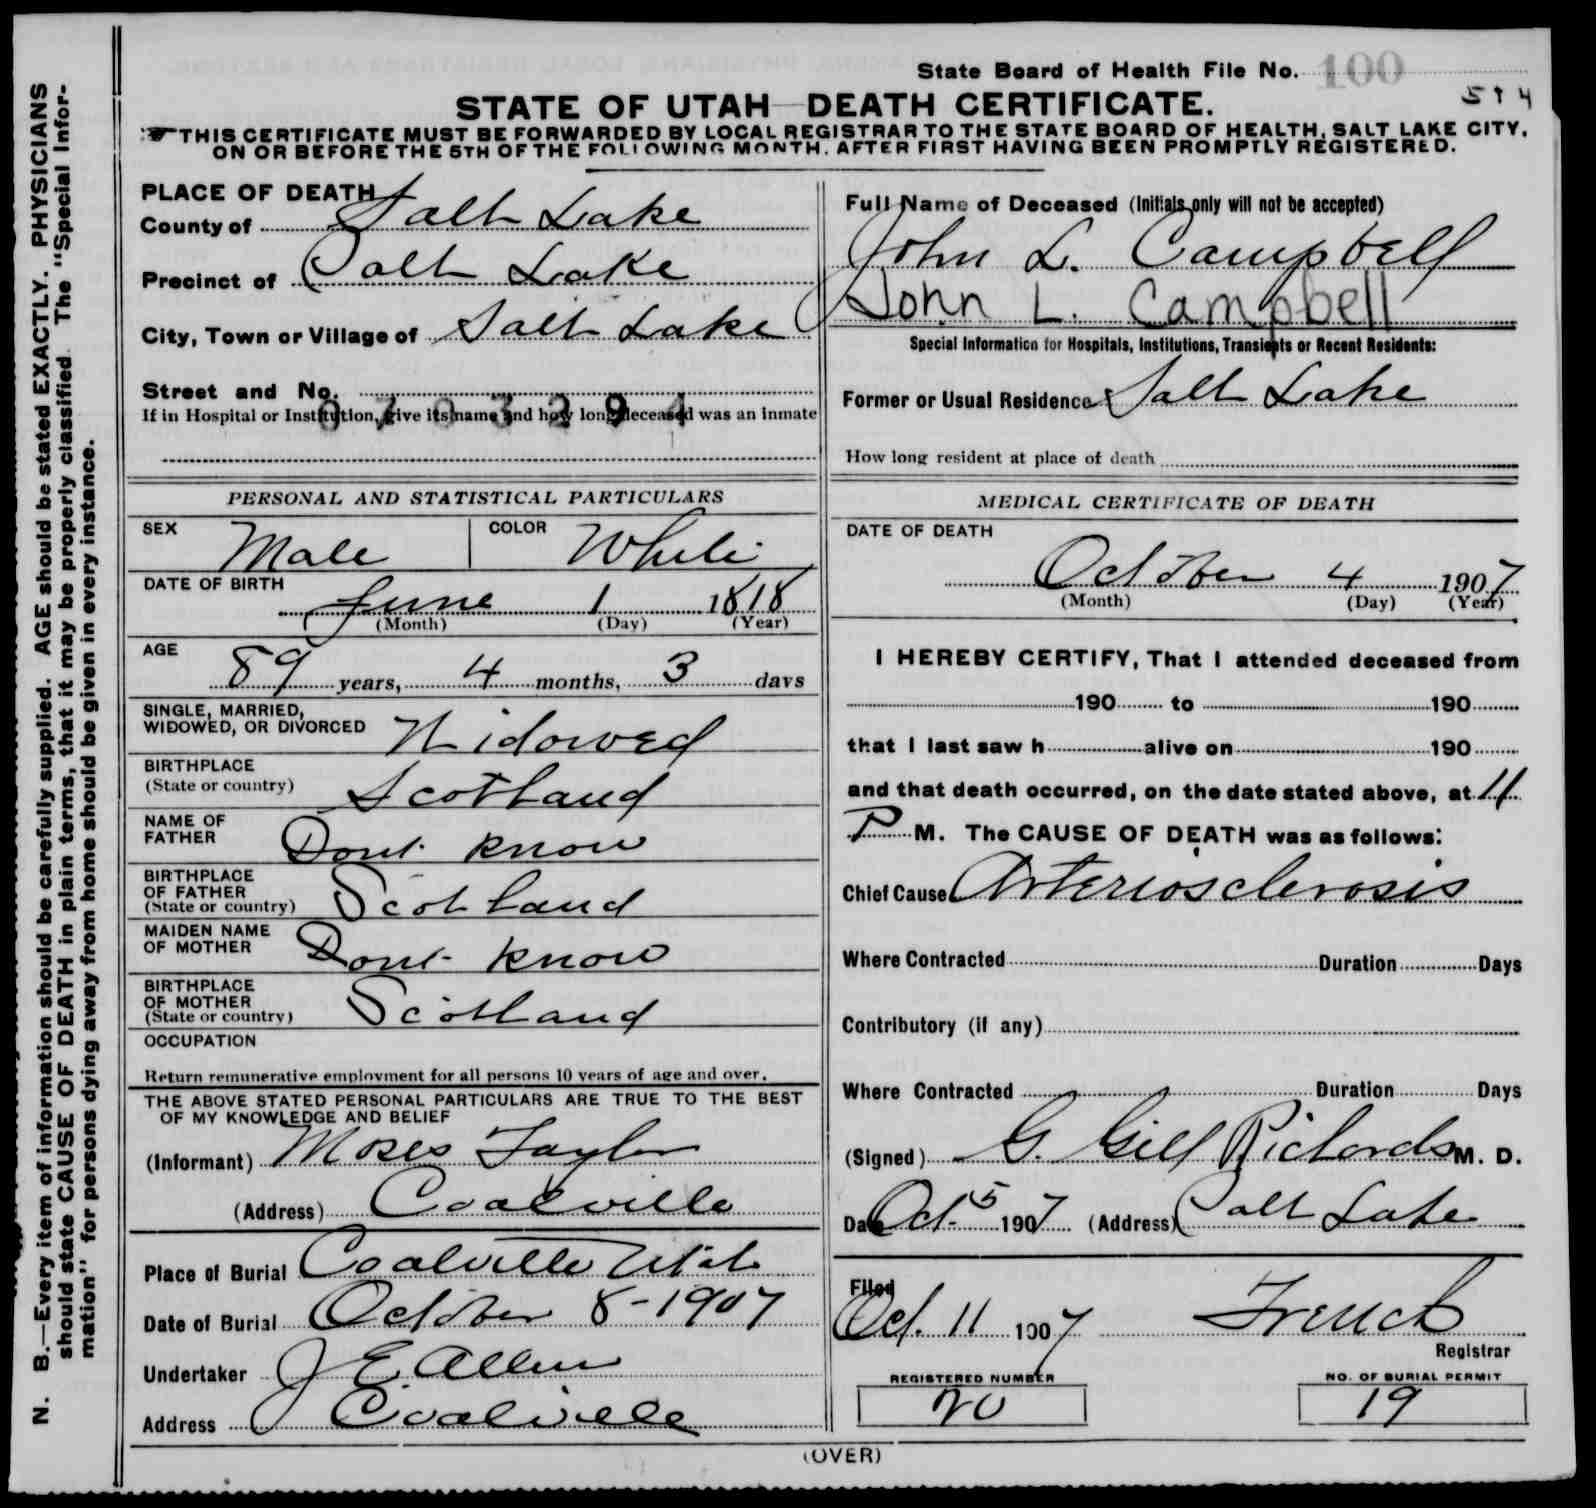 State Board of Health File No. 100
594
STATE OF UTAH—DEATH CERTIFICATE.
THIS CERTIFICATE MUST BE FORWARDED BY LOCAL REGISTRAR TO THE STATE BOARD OF HEALTH, SALT LAKE CITY,
ON OR BEFORE THE 5TH OF THE FOLLOWING MONTH, AFTER FIRST HAVING BEEN PROMPTLY REGISTERED.
N. B.—Every item of information should be carefully supplied. AGE should be stated EXACTLY. PHYSICIANS
should state CAUSE OF DEATH in plain terms, that it may be properly classified. The "Special Infor-
mation" for persons dying away from home should be given in every instance.
PLACE OF DEATH
County of Salt Lake
Precinct of Salt Lake
City, Town or Village of Salt Lake
Street and No.
0703294
If in Hospital or Institution, give its name and how long deceased was an inmate
PERSONAL AND STATISTICAL PARTICULARS
SEX Male COLOR White
DATE OF BIRTH
June 1 1818
(Month) (Day) (Year)
AGE
89 years, 4 months, 3 days
SINGLE, MARRIED,
WIDOWED, OR DIVORCED Widowed
BIRTHPLACE
(State or country) Scotland
NAME OF
FATHER Dont know
BIRTHPLACE
OF FATHER
(State or country) Scotland
MAIDEN NAME
OF MOTHER Dont know
BIRTHPLACE
OF MOTHER
(State or country) Scotland
OCCUPATION
Return remunerative employment for all persons 10 years of age and over.
THE ABOVE STATED PERSONAL PARTICULARS ARE TRUE TO THE BEST
OF MY KNOWLEDGE AND BELIEF
(Informant) Moses Taylor
(Address) Coalville
Place of Burial Coalville Utah
Date of Burial October 8-1907
Undertaker J E Allen
Address Coalville
Full Name of Deceased (Initials only will not be accepted)
John L. Campbell
John L. Campbell
Special Information for Hospitals, Institutions, Transients or Recent Residents:
Former or Usual Residence Salt Lake
How long resident at place of death
MEDICAL CERTIFICATE OF DEATH
DATE OF DEATH
October 4 1907
(Month) (Day) (Year)
I HEREBY CERTIFY, That I attended deceased from
190 to 190
that I last saw h alive on 190
and that death occurred, on the date stated above, at 11
P M. The CAUSE OF DEATH was as follows:
Chief Cause Arteriosclerosis
Where Contracted Duration Days
Contributory (if any)
Where Contracted Duration Days
(Signed) G. Gill Richards M. D.
Date Oct. 5 1907 (Address) Salt Lake
Filed
Oct. 11 1907 French
Registrar
REGISTERED NUMBER NO. OF BURIAL PERMIT
20 19
(OVER)